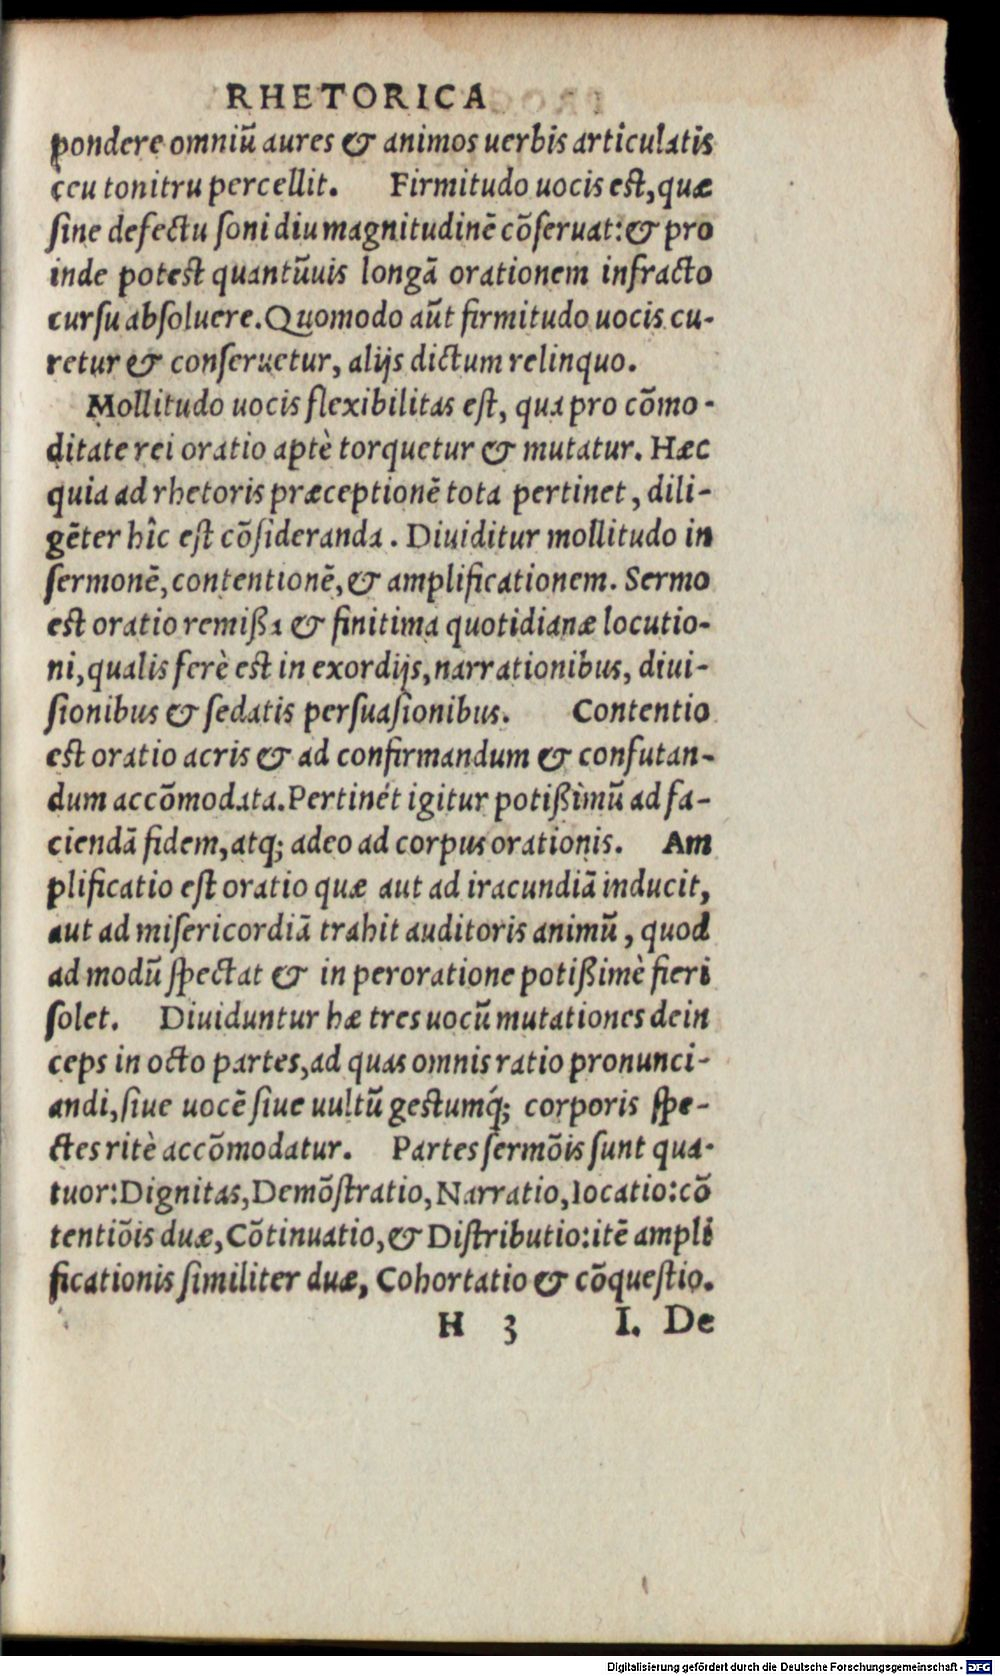 RHETORICA
pondere omniũ aures & animos uerbis articulatis
ceu tonitru percellit. Firmitudo uocis est, quæ
sine defectu soni diu magnitudinẽ cõseruat: & pro
inde potest quantũuis longã orationem infracto
cursu absoluere. Quomodo aũt firmitudo uocis cu-
retur & conseruetur, alijs dictum relinquo.
Mollitudo uocis flexibilitas est, qua pro cõmo-
ditate rei oratio aptè torquetur & mutatur. Hæc
quia ad rhetoris præceptionẽ tota pertinet, dili-
gẽter hîc est cõsideranda. Diuiditur mollitudo in
sermonẽ, contentionẽ, & amplificationem. Sermo
est oratio remißa & finitima quotidianæ locutio-
ni, qualis ferè est in exordijs, narrationibus, diui-
sionibus & sedatis persuasionibus. Contentio
est oratio acris & ad confirmandum & confutan-
dum accõmodata. Pertinet igitur potißimũ ad fa-
ciendã fidem, atq; adeo ad corpus orationis. Am
plificatio est oratio quæ aut ad iracundiã inducit,
aut ad misericordiã trahit auditoris animũ, quod
ad modũ spectat & in peroratione potißimè fieri
solet. Diuiduntur hæ tres uocũ mutationes dein
ceps in octo partes, ad quas omnis ratio pronunci-
andi, siue uocẽ siue uultũ gestumq́; corporis spe-
ctes ritè accõmodatur. Partes sermõis sunt qua-
tuor: Dignitas, Demõstratio, Narratio, Iocatio: cõ
tentiõis duæ, Cõtinuatio, & Distributio: itẽ ampli
ficationis similiter duæ, Cohortatio & cõquestio.
H 3 I. De
Digitalisierung gefördert durch die Deutsche Forschungsgemeinschaft - DFG